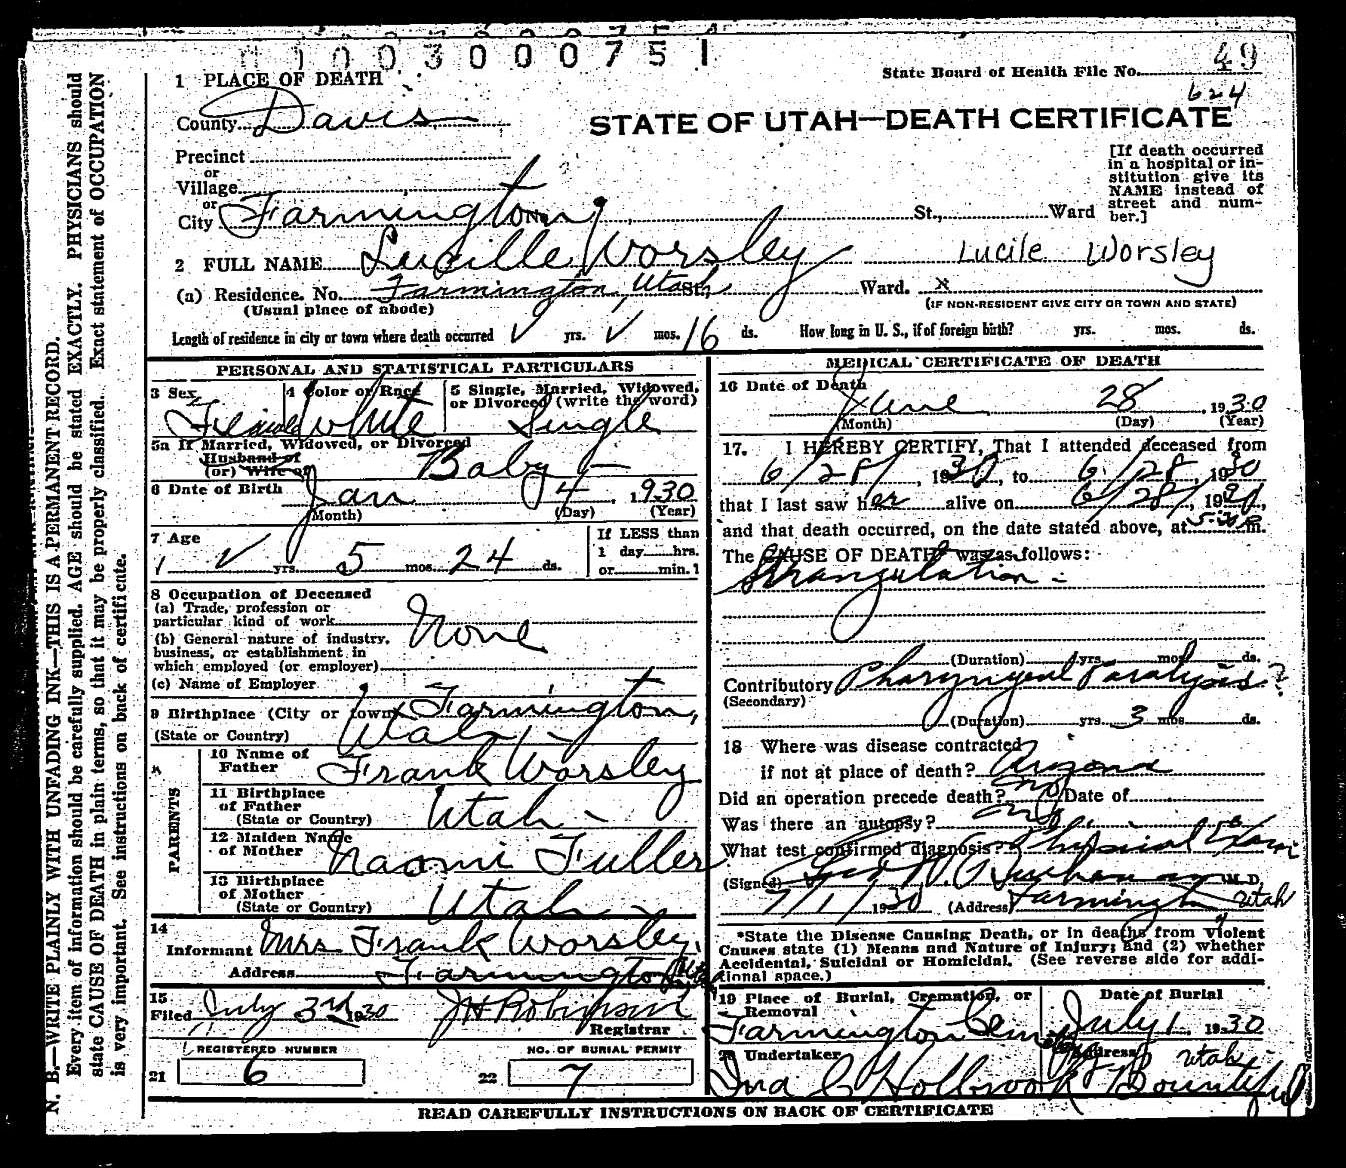 0 1 0 0 3 0 0 0 7 5 1
49
State Board of Health File No.
624
1 PLACE OF DEATH
County Davis
STATE OF UTAH—DEATH CERTIFICATE
Precinct
or
Village
or
City Farmington No. St., Ward
[If death occurred
in a hospital or in-
stitution give its
NAME instead of
street and num-
ber.]
2 FULL NAME Lucille Worsley Lucile Worsley
(a) Residence. No. Farmington, Utah St., Ward. x
(Usual place of abode) (IF NON-RESIDENT GIVE CITY OR TOWN AND STATE)
Length of residence in city or town where death occurred yrs. mos. 16 ds. How long in U. S., if of foreign birth? yrs. mos. ds.
PERSONAL AND STATISTICAL PARTICULARS
3 Sex 4 Color or Race 5 Single, Married, Widowed,
or Divorced (write the word)
Female White Single
5a If Married, Widowed, or Divorced
Husband of
(or) Wife of Baby
6 Date of Birth Jan 4, 1930
(Month) (Day) (Year)
7 Age If LESS than
1 day hrs.
or min.
yrs. 5 mos. 24 ds.
8 Occupation of Deceased
(a) Trade, profession or
particular kind of work None
(b) General nature of industry,
business, or establishment in
which employed (or employer)
(c) Name of Employer
9 Birthplace (City or town) Farmington,
(State or Country) Utah
PARENTS
10 Name of
Father Frank Worsley
11 Birthplace
of Father
(State or Country) Utah
12 Maiden Name
of Mother Naomi Fuller
13 Birthplace
of Mother
(State or Country) Utah
14
Informant Mrs Frank Worsley,
Address Farmington Utah
15
Filed July 3rd 1930 J H Robinson
Registrar
REGISTERED NUMBER NO. OF BURIAL PERMIT
21 6 22 7
MEDICAL CERTIFICATE OF DEATH
16 Date of Death
June 28, 1930
(Month) (Day) (Year)
17. I HEREBY CERTIFY, That I attended deceased from
6/28/, 1930, to 6/28, 1930
that I last saw her alive on 6/28/, 1930,
and that death occurred, on the date stated above, at m.
The CAUSE OF DEATH* was as follows:
Strangulation
(Duration) yrs. mos. ds.
Contributory Pharyngeal Paralysis?
(Secondary)
(Duration) yrs. 3 mos ds.
18 Where was disease contracted
if not at place of death? Arizona
Did an operation precede death? no Date of
Was there an autopsy? no
What test confirmed diagnosis? Physical Exam
(Signed) M. D.
7/1/1930 (Address) Farmington Utah
*State the Disease Causing Death, or in deaths from Violent
Causes state (1) Means and Nature of Injury; and (2) whether
Accidental, Suicidal or Homicidal. (See reverse side for addi-
tional space.)
19 Place of Burial, Cremation, or
Removal Date of Burial
Farmington Cemetery July 1, 1930
20 Undertaker Address Utah
Ina C Holbrook Bountiful
READ CAREFULLY INSTRUCTIONS ON BACK OF CERTIFICATE
N. B.—WRITE PLAINLY WITH UNFADING INK—THIS IS A PERMANENT RECORD.
Every item of information should be carefully supplied. AGE should be stated EXACTLY. PHYSICIANS should
state CAUSE OF DEATH in plain terms, so that it may be properly classified. Exact statement of OCCUPATION
is very important. See instructions on back of certificate.